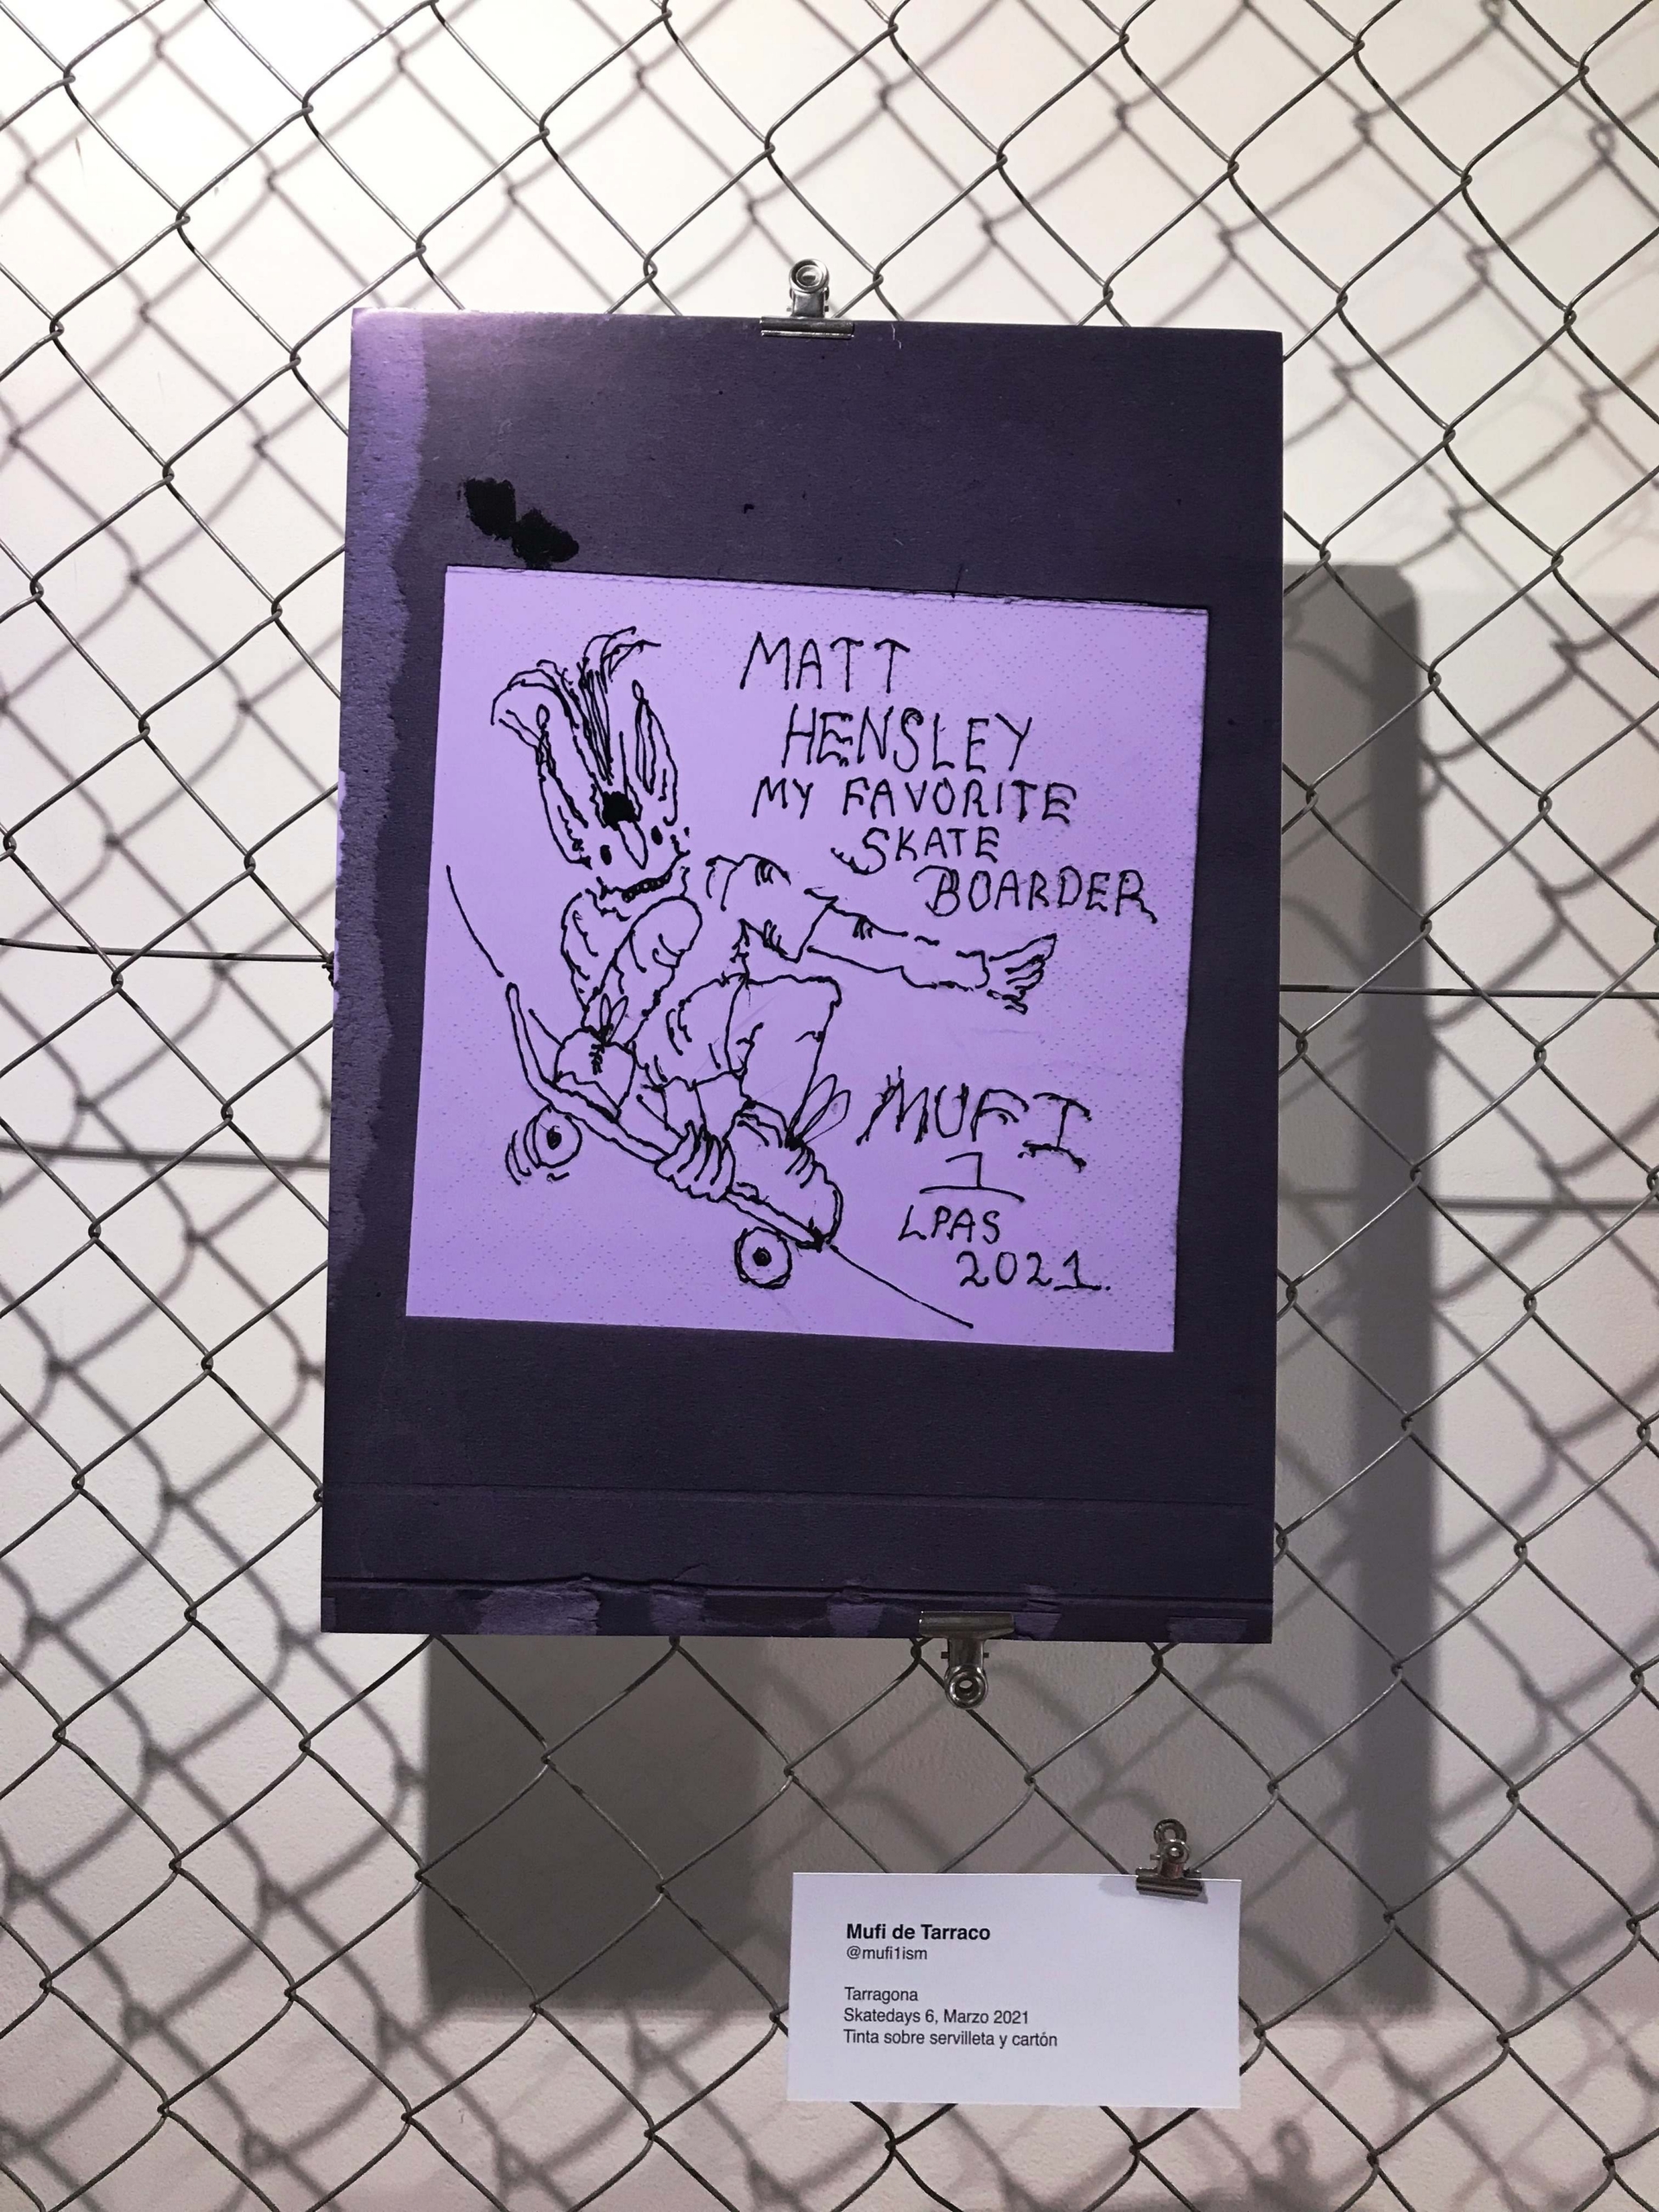 MATT
HENSLEY
MY FAVORITE
SKATE
BOARDER
MUFI
1
LPAS
2021.
Mufi de Tarraco
@mufi1ism
Tarragona
Skatedays 6, Marzo 2021
Tinta sobre servilleta y cartón